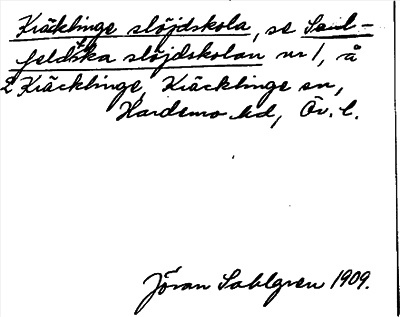 Kräcklinge slöjdskola, se Saul-
feldtska slöjdskolan nr 1, å
2 Kräcklinge, Kräcklinge sn,
Hardemo hd, Ör. l.
Jöran Sahlgren 1909.